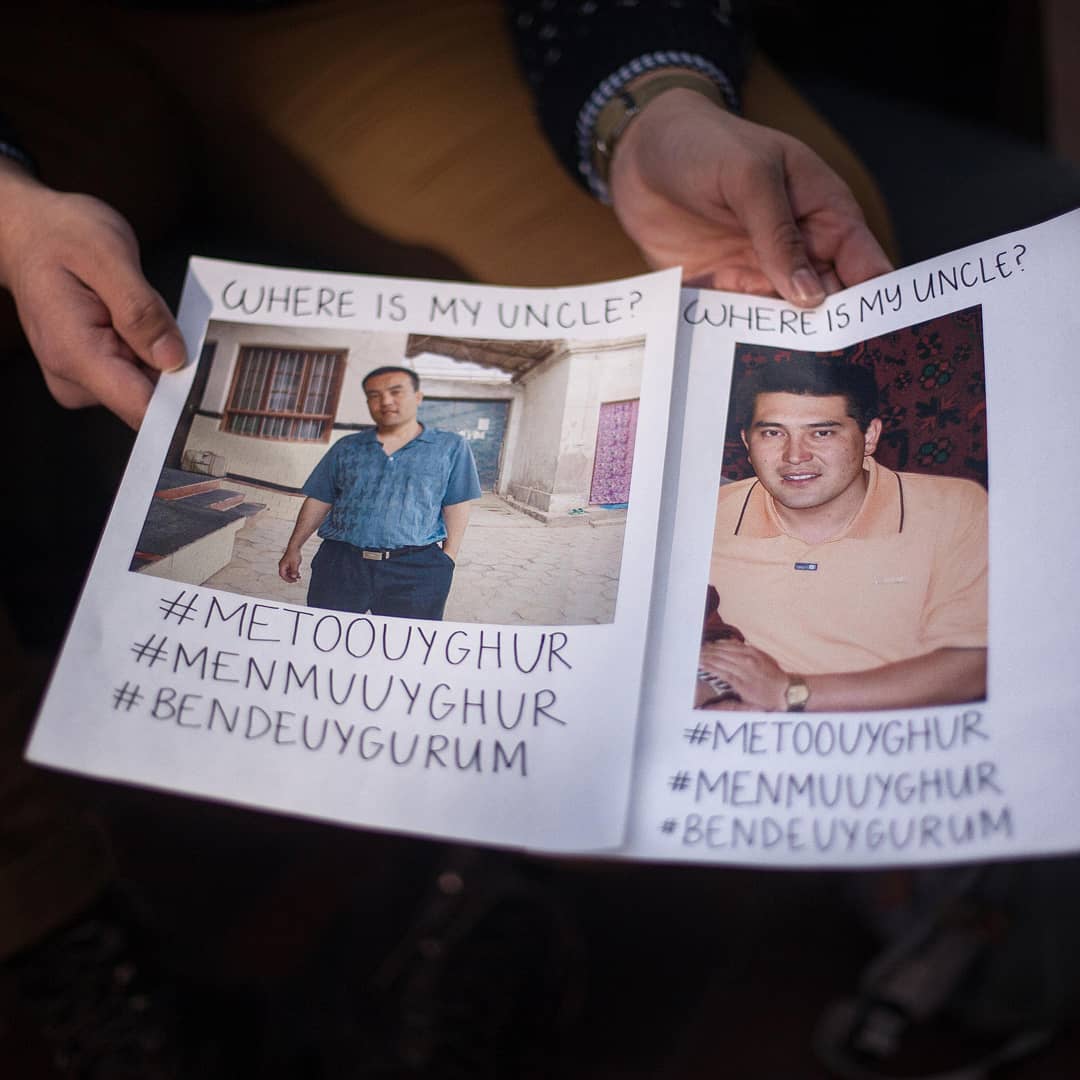 WHERE IS MY UNCLE?
#METOOUYGHUR
#MENMUUYGHUR
#BENDEUYGURUM
WHERE IS MY UNCLE?
#METOOUYGHUR
#MENMUUYGHUR
#BENDEUYGURUM